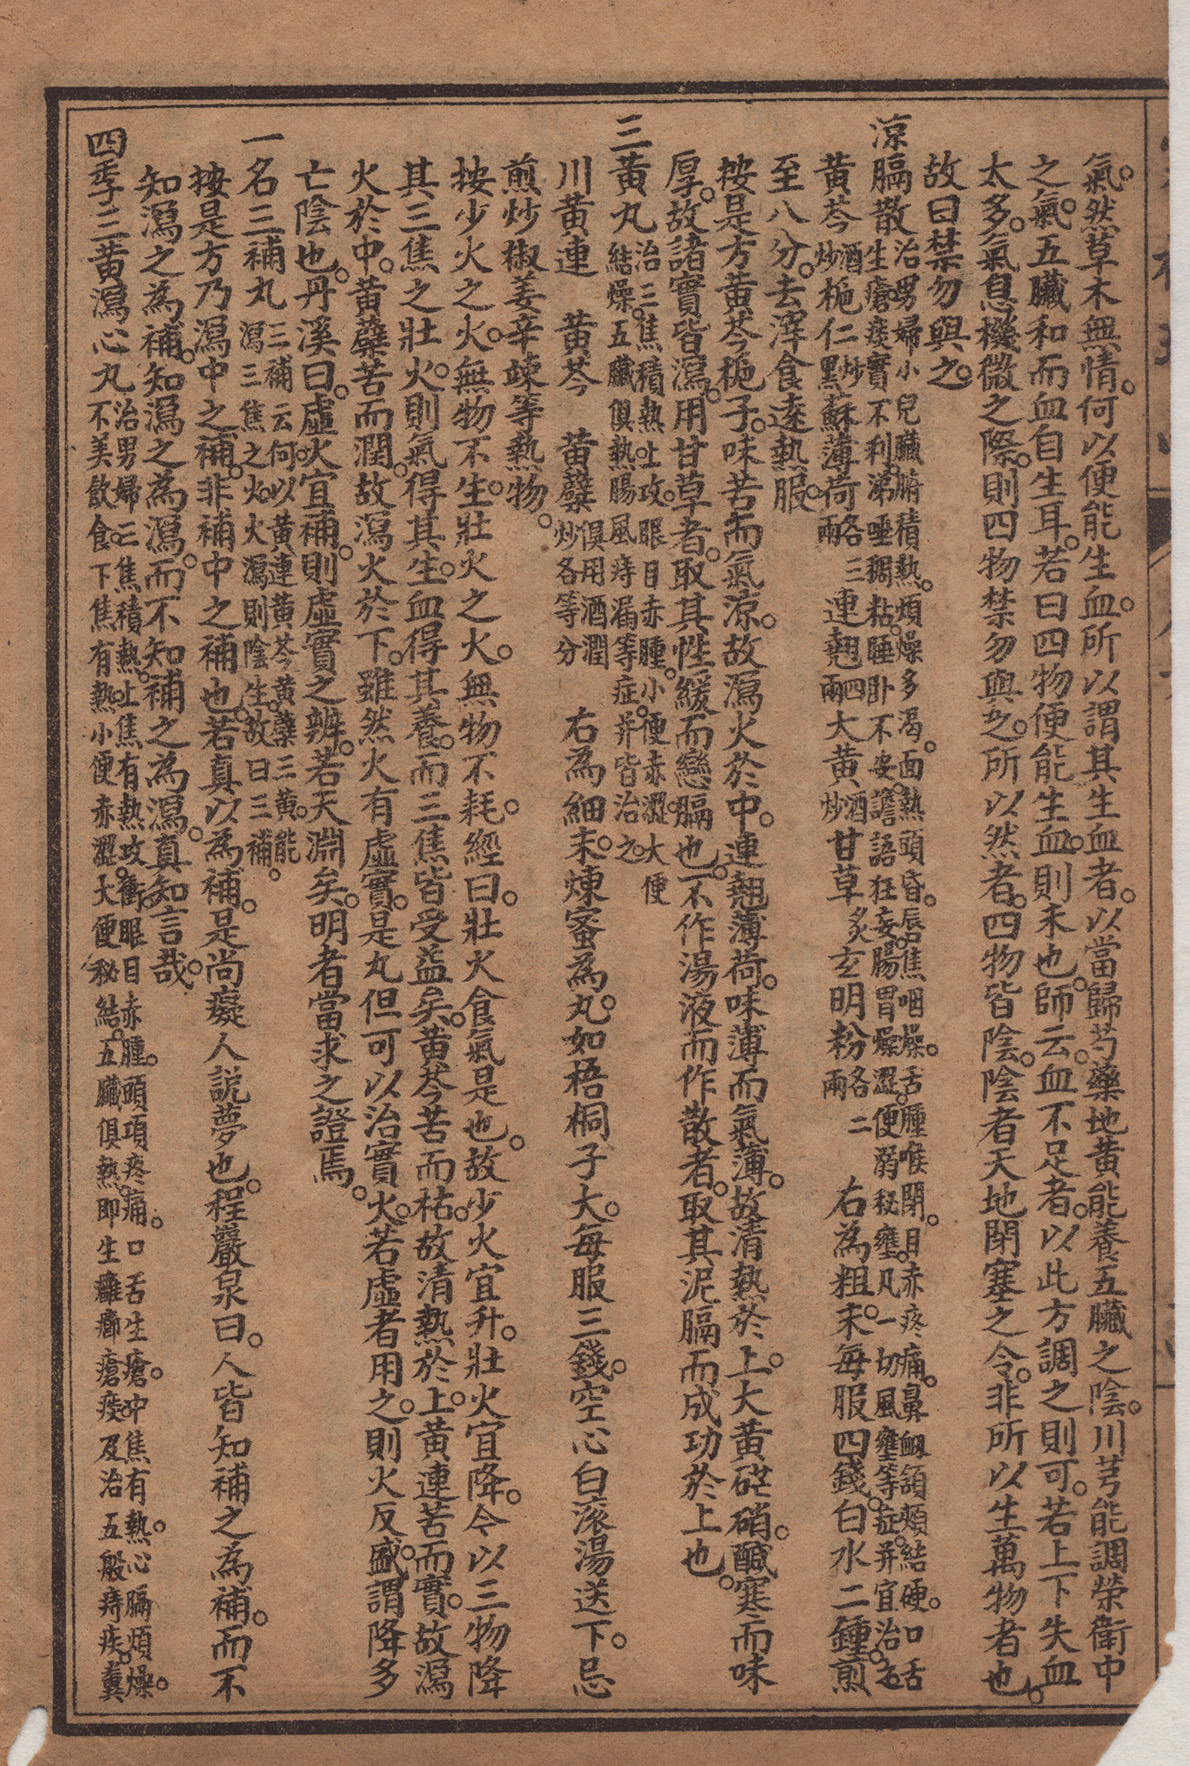 氣。然草木無情。何以便能生血。所以謂其生血者。以當歸芍藥地黄能養五臟之陰。川芎能調榮衛中
之氣。五臟和而血自生耳。若曰四物便能生血。則未也。師云。血不足者。以此方調之則可。若上下失血
太多。氣息機微之際。則四物禁勿與之。所以然者。四物皆陰。陰者天地閉塞之令。非所以生萬物者也。
故曰禁勿與之。
涼膈散
治男婦小兒臟腑積熱。煩燥多渴。面熱頭昏。唇焦咽燥。舌腫喉閉。目赤疼痛。鼻衄頷頰結硬。口舌
生瘡痰實不利。涕唾稠粘。睡卧不安。譫語狂妄。腸胃燥澀。便溺秘壅。凡一切風壅等症。并宜治之
黄芩酒炒 梔仁炒黑 蘇薄荷各三兩 連翹四兩 大黄酒炒 甘草炙 玄明粉各二兩 右為粗末。每服四錢。白水二鍾。煎
至八分。去滓食遠熱服。
按是方黄芩梔子。味苦而氣涼。故瀉火於中。連翹薄荷。味薄而氣薄。故清熱於上。大黄硭硝。鹹寒而味
厚。故諸實皆瀉。用甘草者。取其性緩而戀膈也。不作湯液而作散者。取其泥膈而成功於上也。
三黄丸
治三焦積熱。上攻。眼目赤腫。小便赤澀。大便
結燥。五臟俱熱。腸風痔漏等症。并皆治之。
川黄連 黄芩 黄蘗俱用酒潤炒各等分 右為細末。煉蜜為丸。如梧桐子大。每服三錢。空心白滚湯送下。忌
煎炒椒姜辛竦等熱物。
按少火之火。無物不生。壯火之火。無物不耗。經曰。壯火食氣是也。故少火宜升。壯火宜降。今以三物降
其三焦之壯火。則氣得其生。血得其養。而三焦皆受益矣。黄芩苦而枯。故清熱於上。黄連苦而實。故瀉
火於中。黄蘗苦而潤。故瀉火於下。雖然火有虛實。是丸但可以治實火。若虛者用之。則火反盛。謂降多
亡陰也。丹溪曰。虛火宜補。則虛實之辨。若天淵矣。明者當求之證焉。
一名三補丸
三補云何。以黄連黄芩黄蘗三黄。能
瀉三焦之火。火瀉則陰生。故曰三補。
按是方乃瀉中之補。非補中之補也。若真以為補。是尚癡人說夢也。程嚴泉曰。人皆知補之為補。而不
知瀉之為補。知瀉之為瀉。而不知補之為瀉。真知言哉。
四季三黄瀉心丸
治男婦三焦積熱。上焦有熱攻衝眼目赤腫。頭項疼痛。口舌生瘡。中焦有熱。心膈煩燥。
不美飲食。下焦有熱。小便赤澀。大便秘結。五臟俱熱。即生癰癤瘡痍及治五般痔疾。糞